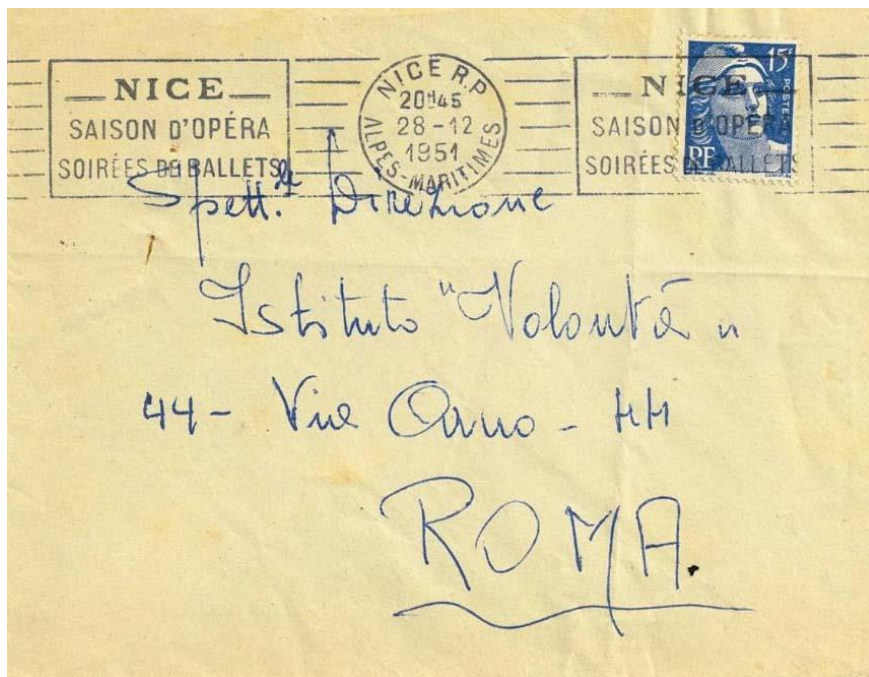 NICE
SAISON D'OPÉRA
SOIRÉES DE BALLETS
NICE R.P.
20H45
28-12
1951
ALPES-MARITIMES
NICE
SAISON D'OPÉRA
SOIRÉES DE BALLETS
15F
POSTES
RF
Spett.le Direzione
Istituto "Volontà"
44 - Via Arno - 44
ROMA.